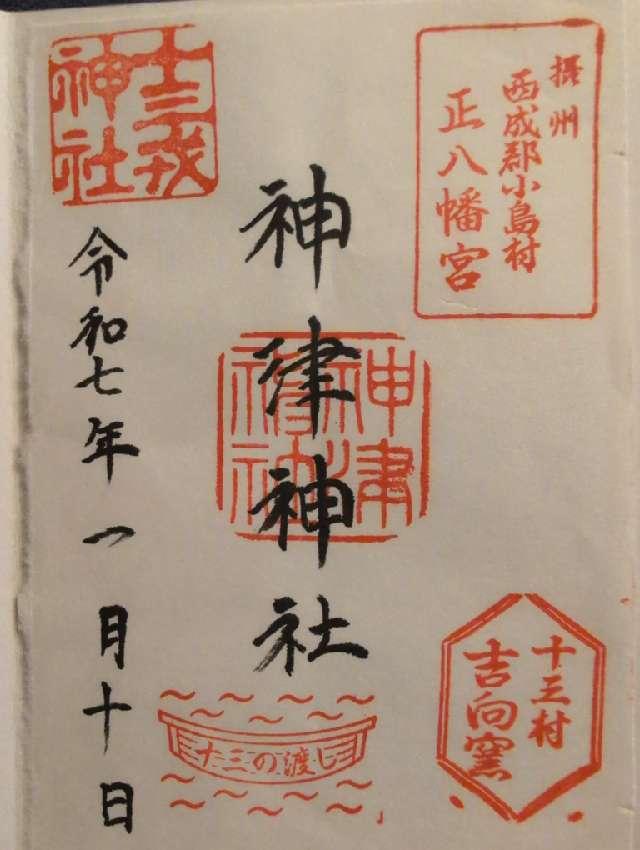 摂州
西成郡小島村
正八幡宮
十三村
吉向窯
神津神社
神津神社
十三の渡し
十三戎
神社
令和七年一月十日